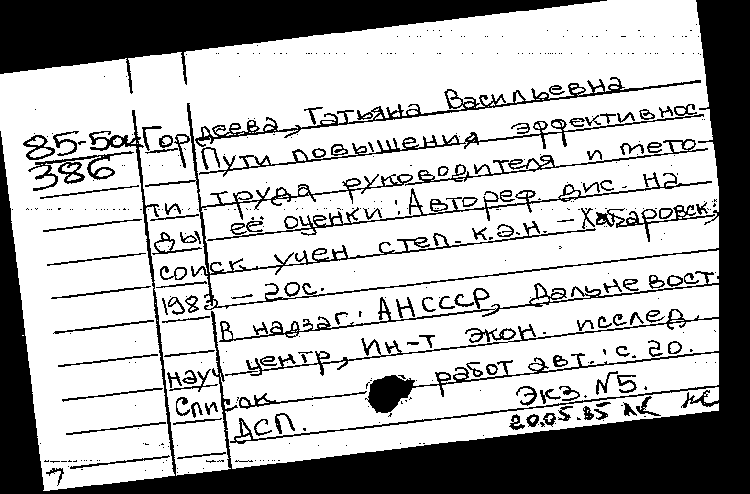 85-5ок
386
Гордеева, Татьяна Васильевна
Пути повышения эффективнос-
ти труда руководителя и мето-
ды её оценки: Автореф. дис. на
соиск. учен. степ. к.э.н. - Хабаровск;
1983. - 20с.
В надзаг.: АНСССР, Дальневост.
науч центр, Ин-т экон. исслед.
Список работ авт.: с. 20.
ДСП. Экз. №5.
20.05.85